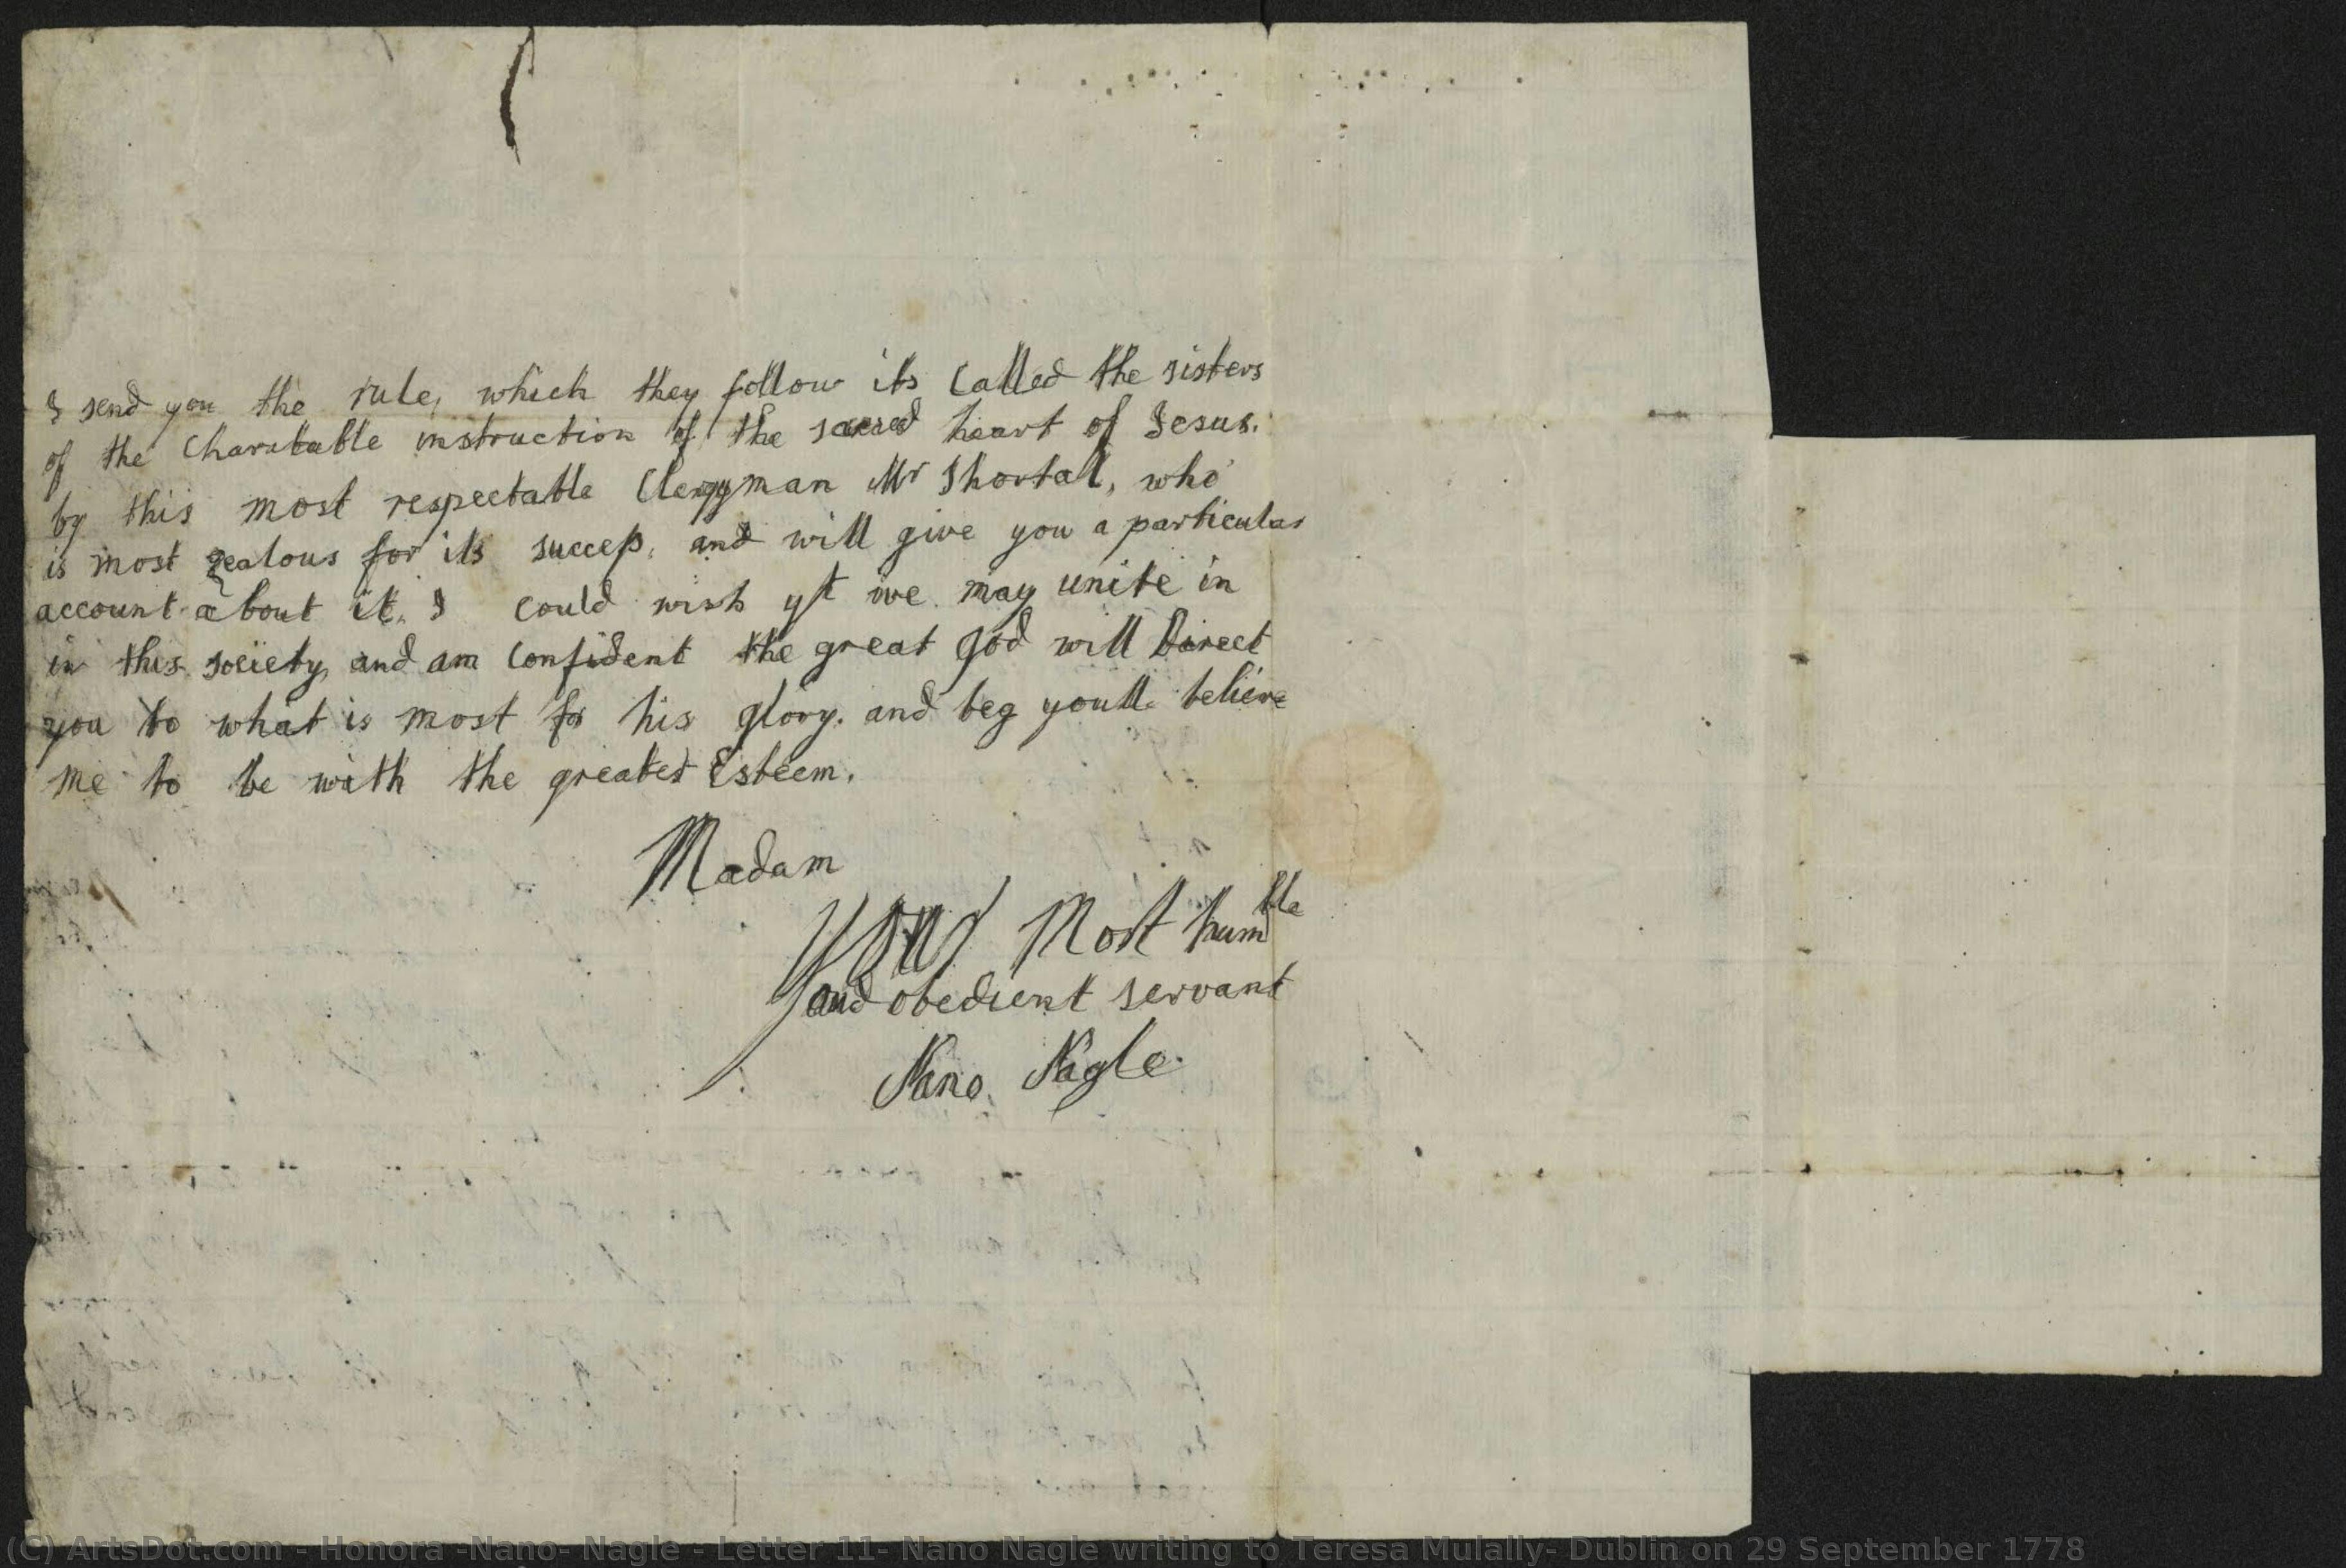 I send you the rule, which they follow its Called the sisters
of the Charitable instruction of the sacred heart of Jesus.
by this most respectable Clergyman Mr Shortal, who
is most zealous for its success, and will give you a particular
account about it. I could wish yt we may unite in
in this society, and am Confident the great God will Direct
you to what is most for his glory. and beg youll believe
me to be with the greatest Esteem.
Madam
Your Most humble
and obedient servant
Nano Nagle
(C) ArtsDot.com - Honora -Nano- Nagle - Letter 11- Nano Nagle writing to Teresa Mulally- Dublin on 29 September 1778